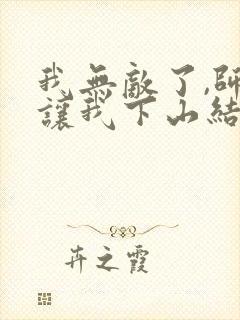 我無敵了,師
讓我下山結
卉之霞